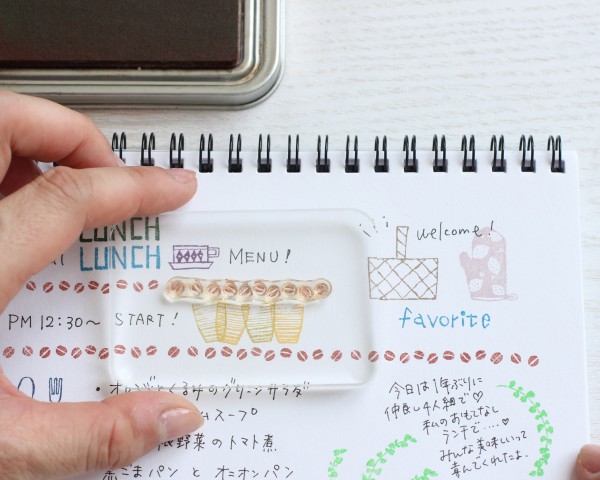 LUNCH
LUNCH MENU!
welcome!
PM 12:30〜 START!
favorite
・オレンジとくるみのグリーンサラダ
スープ
野菜のトマト煮
黒ごまパン と オニオンパン
今日は1年ぶりに
仲良し4人組で♡
私のおもてなし
ランチで....♡
みんな美味しいって
喜んでくれたよ.